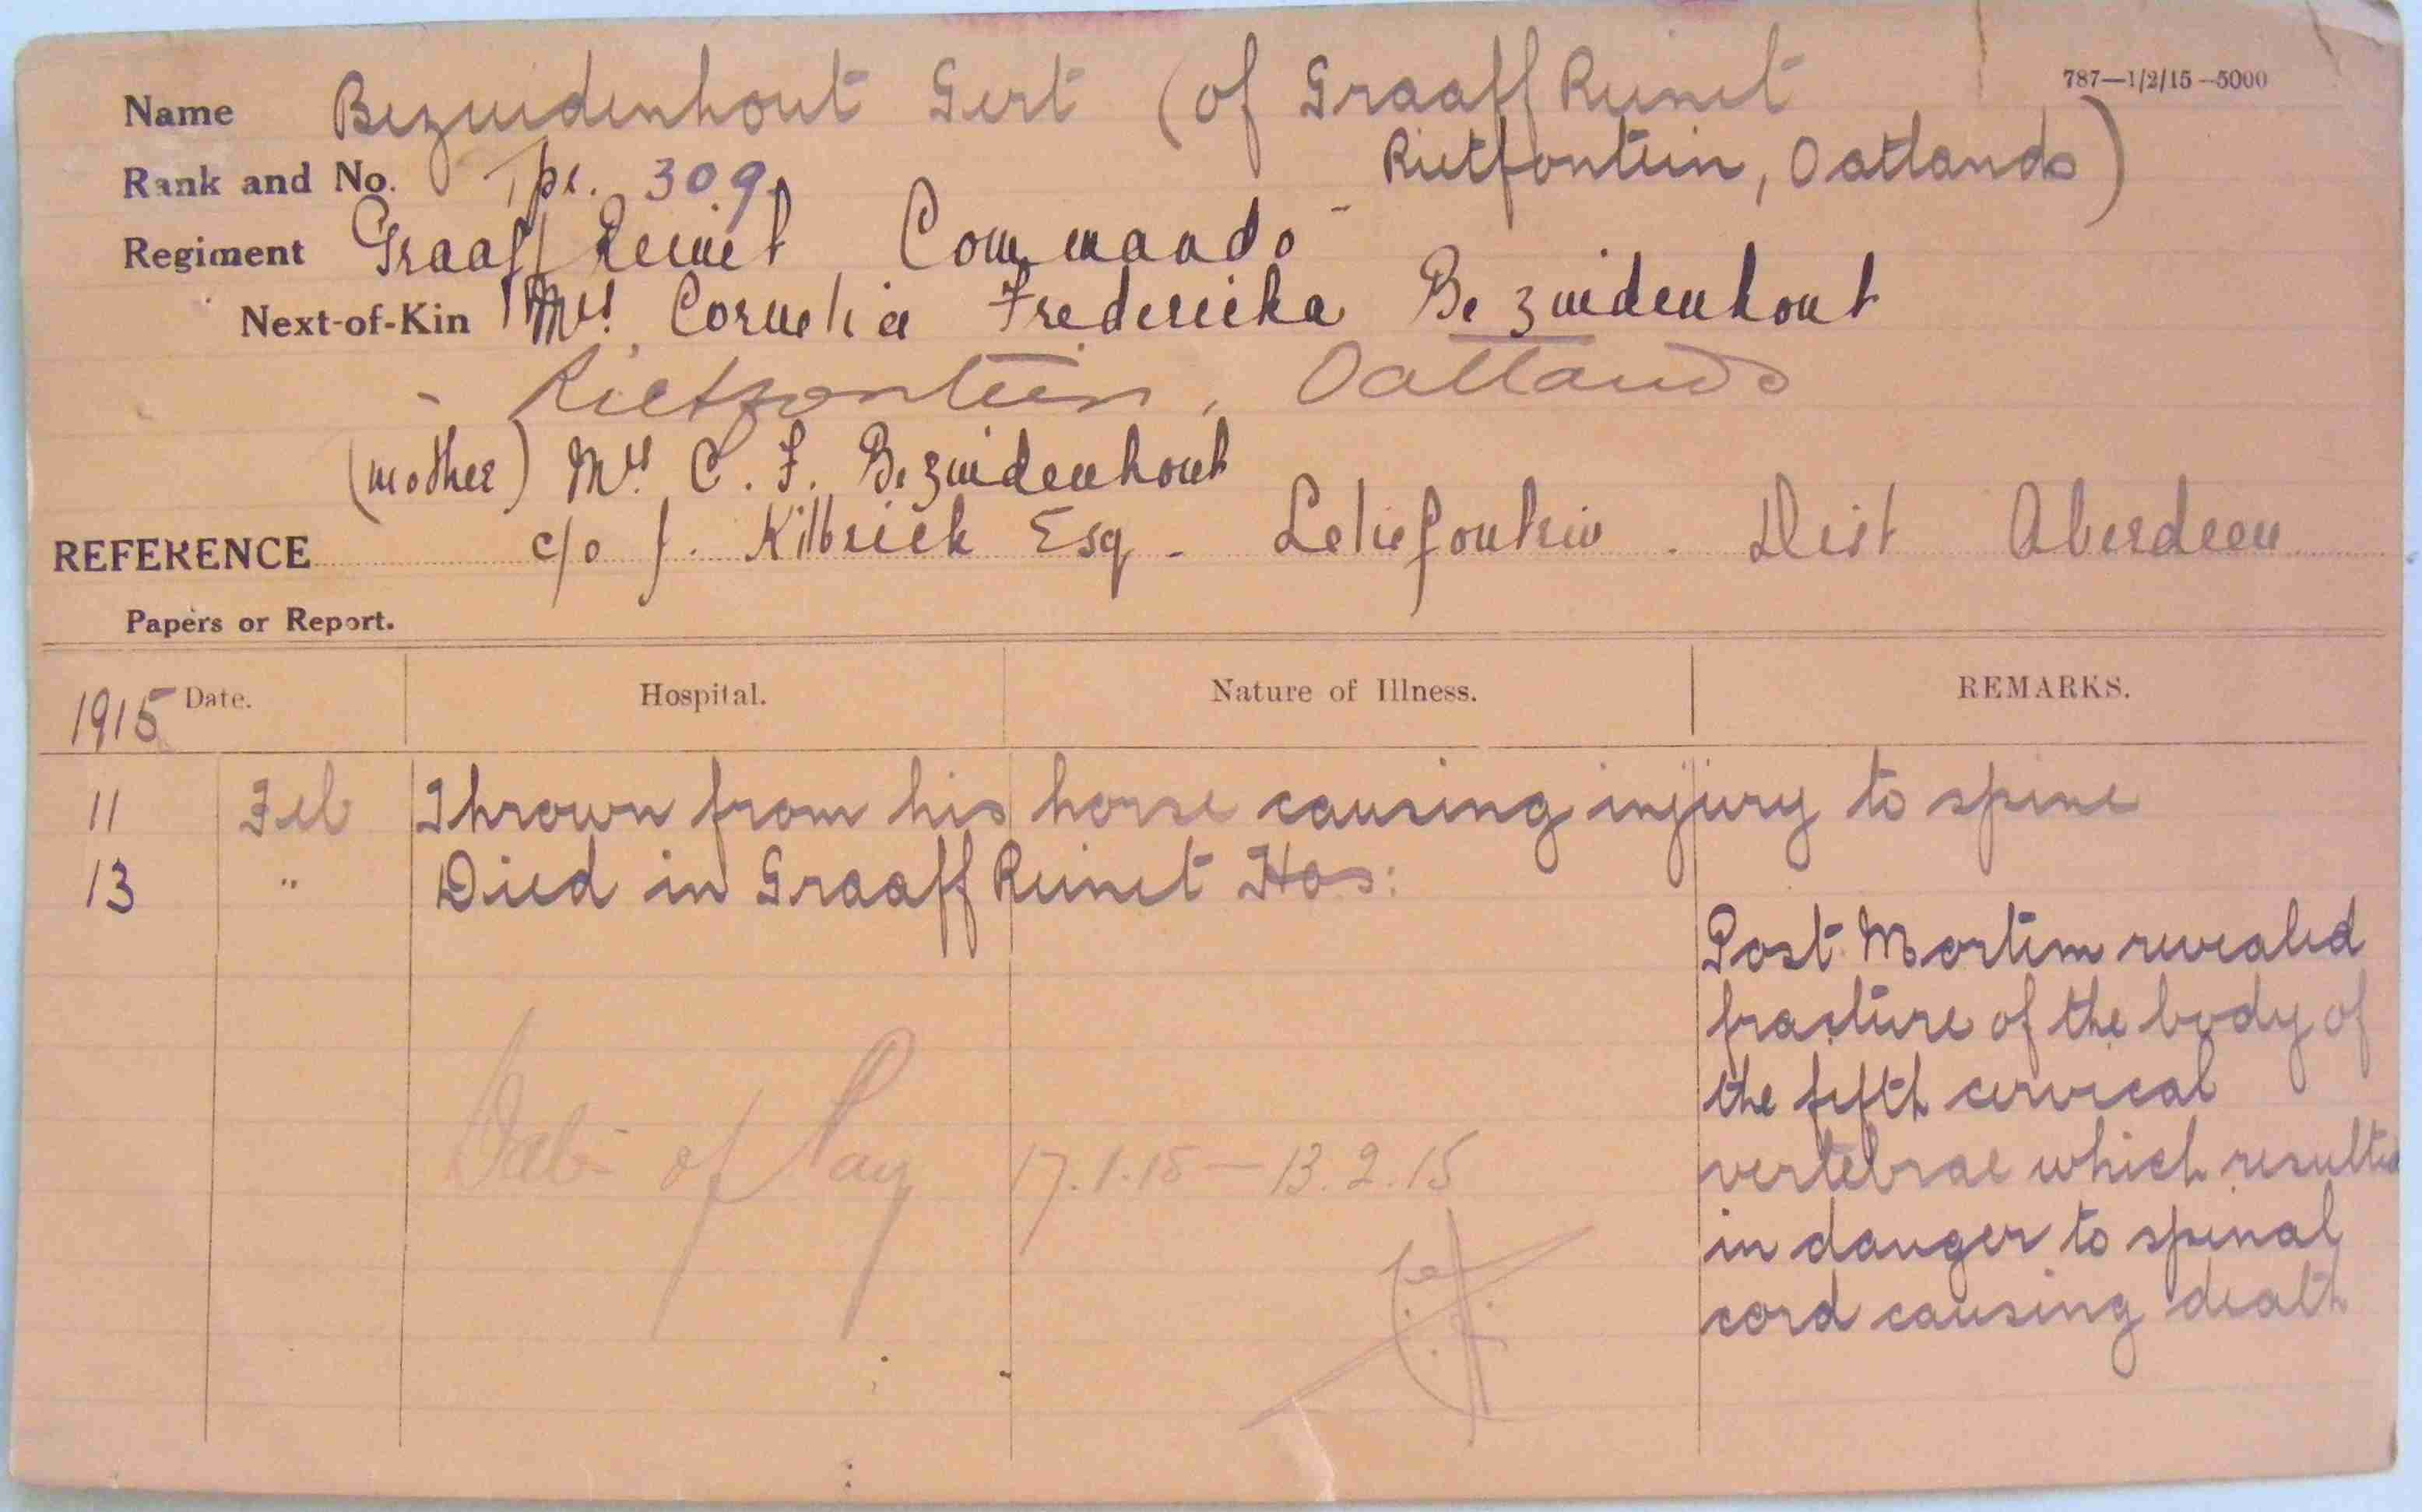 787—1/2/15—5000
Name Bezuidenhout Gert (of Graaff Reinet
Rietfontein, Oatlands)
Rank and No. Tpr. 309.
Regiment Graaff Reinet Commando
Next-of-Kin Mrs. Cornelia Frederieka Bezuidenhout
Rietfontein, Oatlands
(mother) Mrs. C. F. Bezuidenhout
REFERENCE c/o J. Kilbrick Esq - Leliefontein. Dist Aberdeen
Papers or Report.
1915 Date. Hospital. Nature of Illness. REMARKS.
11 Feb Thrown from his horse causing injury to spine
13 " Died in Graaff Reinet Hos:
Post Mortem revealed
fracture of the body of
the fifth cervical
vertebrae which resulted
in danger to spinal
cord causing death
of Pay 17.1.15 — 13.2.15